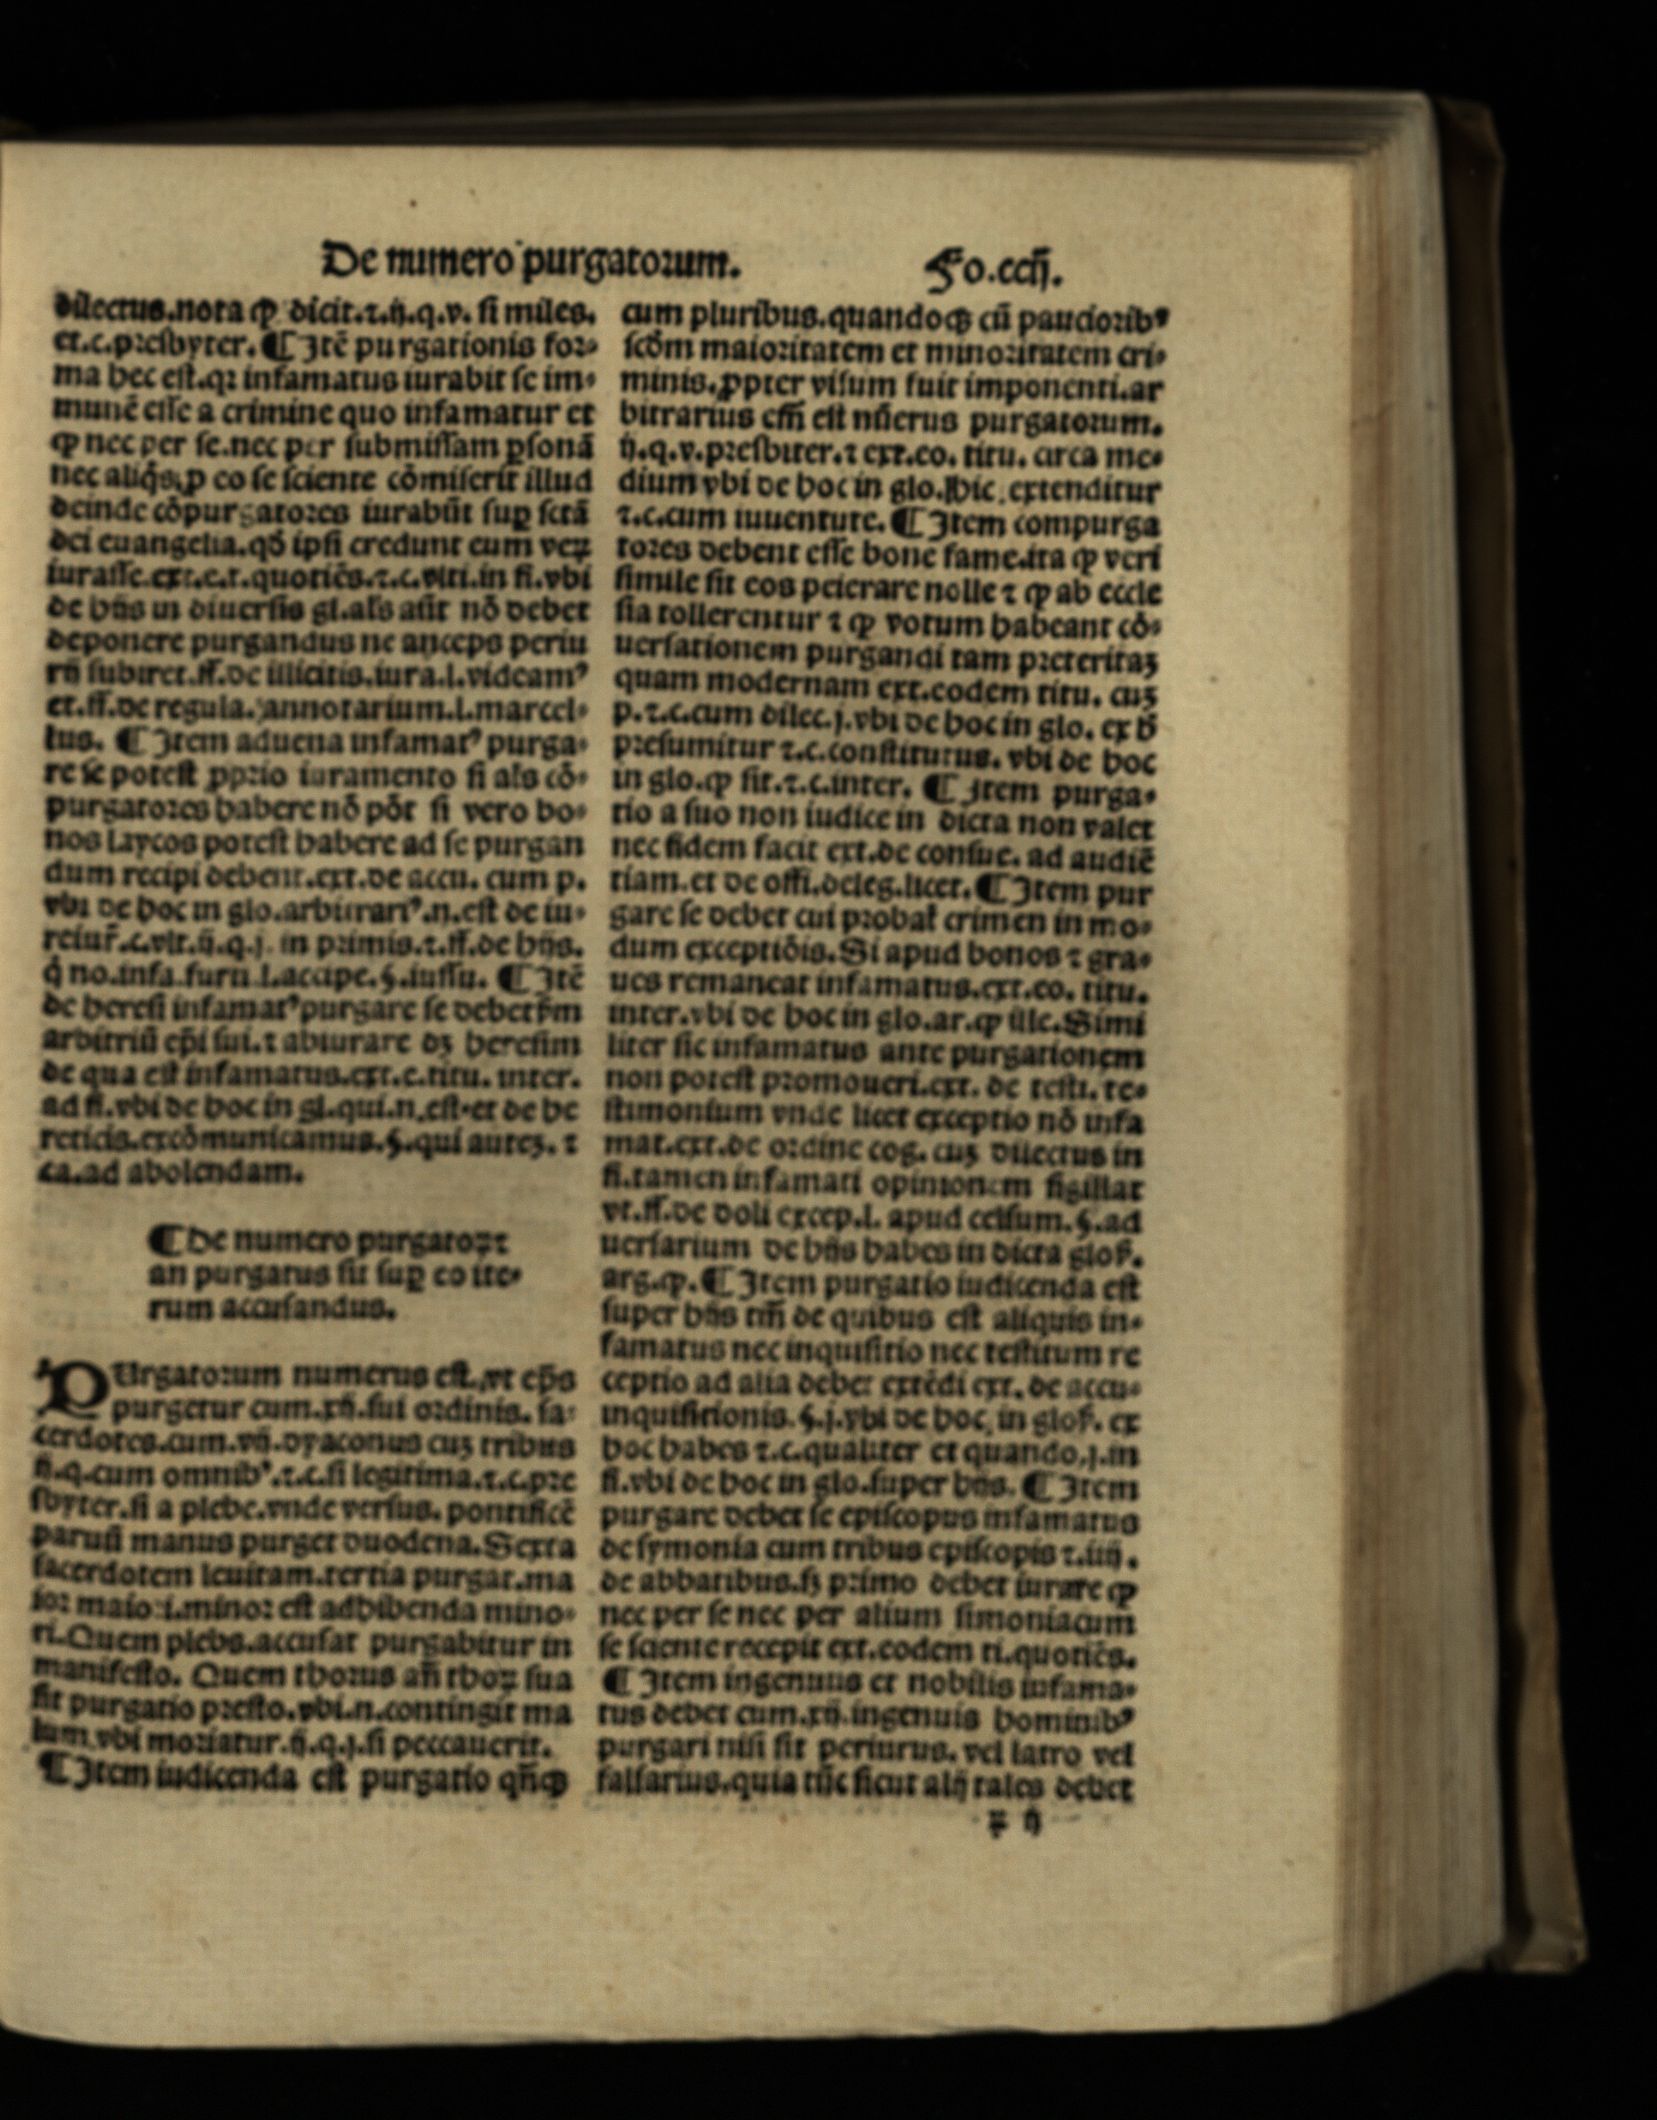 De numero purgatorum.
Fo.ccij.
dilectus.nota ꝙ dicit.⁊.ij.q.v. si miles.
et.c.presbyter.¶Itē purgationis for-
ma hec est.qꝛ infamatus iurabit se im-
munē esse a crimine quo infamatur et
ꝙ nec per se.nec per submissam ꝑsonā
nec aliq̄s ꝓ eo se sciente cōmiserit illud
deinde cōpurgatores iurabūt suꝑ sctā
dei euangelia.qō ipsi credunt eum veꝝ
iurasse.ext.e.t.quotiēs.⁊.c.vlti.in fi.vbi
de hijs in diuersis gl.als asit nō debet
deponere purgandus ne anceps periu
rij subiret.ff.de illicitis.iura.l.videamꝰ
et.ff.de regula.annotarium.l.marcel-
lus. ¶Item aduena infamatꝰ purga-
re se potest ꝓprio iuramento si als cō-
purgatores habere nō pōt si vero bo-
nos laycos potest habere ad se purgan
dum recipi debent.ext.de accu. cum p.
vbi de hoc in glo.arbitrariꝰ.n.est de iu-
reiur̄.c.vlt.ij.q.j. in primis.⁊.ff.de hijs.
q̇ no.infa.furti l.accipe.§.iussu. ¶Itē
de heresi infamatꝰ purgare se debet ẜm
arbitriū ep̄i sui.⁊ abiurare dꝫ heresim
de qua est infamatus.ext.e.titu. inter.
ad fi.vbi de hoc in gl.qui.n.est.et de he
reticis.excōmunicamus.§.qui auteꝫ. ⁊
ca.ad abolendam.
¶De numero purgatoꝝ ⁊
an purgatus sit suꝑ eo ite-
rum accusandus.
PUrgatorum numerus est.vt ep̄s
purgetur cum.xij.sui ordinis. sa-
cerdotes.cum.vij.dyaconus cuꝫ tribus
ij.q.cum omnibꝰ.⁊.c.si legitima.⁊.c.pre
sbyter.si a plebe.vnde versus. pontificē
parum manus purget duodena.Sexta
sacerdotem leuitam.tertia purgat.ma
ior maiori.minor est adhibenda mino-
ri.Quem plebs.accusat purgabitur in
manifesto. Quem thorus an̄ thoꝝ sua
sit purgatio presto.vbi.n.contingit ma
lum.vbi moriatur.ij.q.j.si peccauerit.
¶Item iudicenda est purgatio qn̄qꝫ
cum pluribus.quandoqꝫ cū paucioribꝰ
scḋm maioritatem et minoritatem cri-
minis.ꝓpter visum fuit imponenti.ar
bitrarius em̄ est nūerus purgatorum.
ij.q.v.presbiter.⁊ ext.eo. titu. circa me-
dium vbi de hoc in glo.hic.extenditur
⁊.c.cum iuuentute.¶Item compurga
tores debent esse bone fame.ita ꝙ veri
simile sit eos peierare nolle ⁊ ꝙ ab eccle
sia tollerentur ⁊ ꝙ votum habeant cō-
uersationem purgandi tam preteritaꝫ
quam modernam ext.eodem titu. cuꝫ
p.⁊.c.cum dilec.j.vbi de hoc in glo. ex
presumitur ⁊.c.constitutus. vbi de hoc
in glo.ꝙ sit.⁊.c.inter. ¶Item purga-
tio a suo non iudice in dicta non valet
nec fidem facit ext.de consue. ad audiē
tiam.et de offi.deleg.licet.¶Item pur
gare se debet cui probat̄ crimen in mo-
dum exceptiōis.Si apud bonos ⁊ gra-
ues remaneat infamatus.ext.eo. titu.
inter.vbi de hoc in glo.ar.ꝙ ille.Simi
liter sic infamatus ante purgationem
non potest promoueri.ext. de testi. te-
stimonium vnde licet exceptio nō infa
mat.ext.de ordine cog. cuꝫ dilectus in
fi.tamen infamati opinionem sigillat
vt.ff.de doli excep.l. apud celsum.§.ad
uersarium de hijs habes in dicta glos̄.
arg.ꝙ.¶Item purgatio iudicenda est
super hijs tm̄ de quibus est aliquis in-
famatus nec inquisitio nec testium re
ceptio ad alia debet extēdi ext. de accu-
inquisitionis.§.j.vbi de hoc in glos̄. ex
hoc habes ⁊.c.qualiter et quando.j.in
fi.vbi de hoc in glo.super hijs. ¶Item
purgare debet se episcopus infamatus
de symonia cum tribus episcopis ⁊.iiij.
de abbatibus.sꝫ primo debet iurare ꝙ
nec per se nec per alium simoniacum
se sciente recepit ext.eodem ti.quotiēs.
¶Item ingenuus et nobilis infama-
tus debet cum.xij.ingenuis hominibꝰ
purgari nisi sit periurus. vel latro vel
falsarius.quia tūc sicut alij tales debet
ij